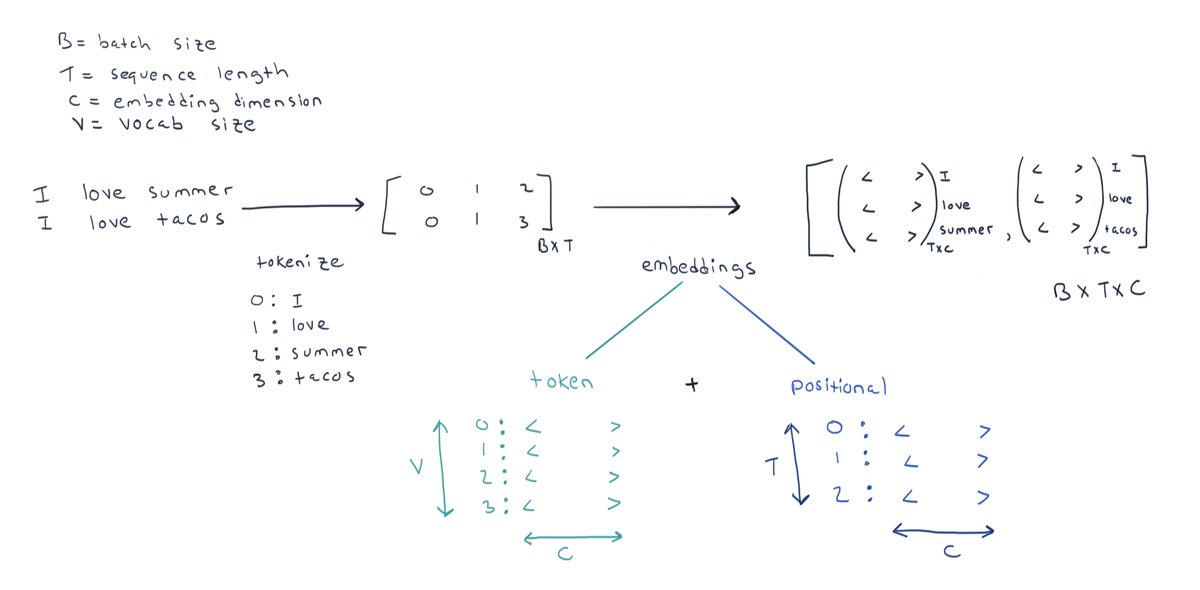 B = batch size
T = sequence length
C = embedding dimension
V = vocab size
I love summer
I love tacos
tokenize
0 : I
1 : love
2 : summer
3 : tacos
0 1 2
0 1 3
B X T
embeddings
< > I
< > love
< > summer
T X C
,
< > I
< > love
< > tacos
T X C
B X T X C
token + positional
V
0 : < >
1 : < >
2 : < >
3 : < >
C
T
0 : < >
1 : < >
2 : < >
C